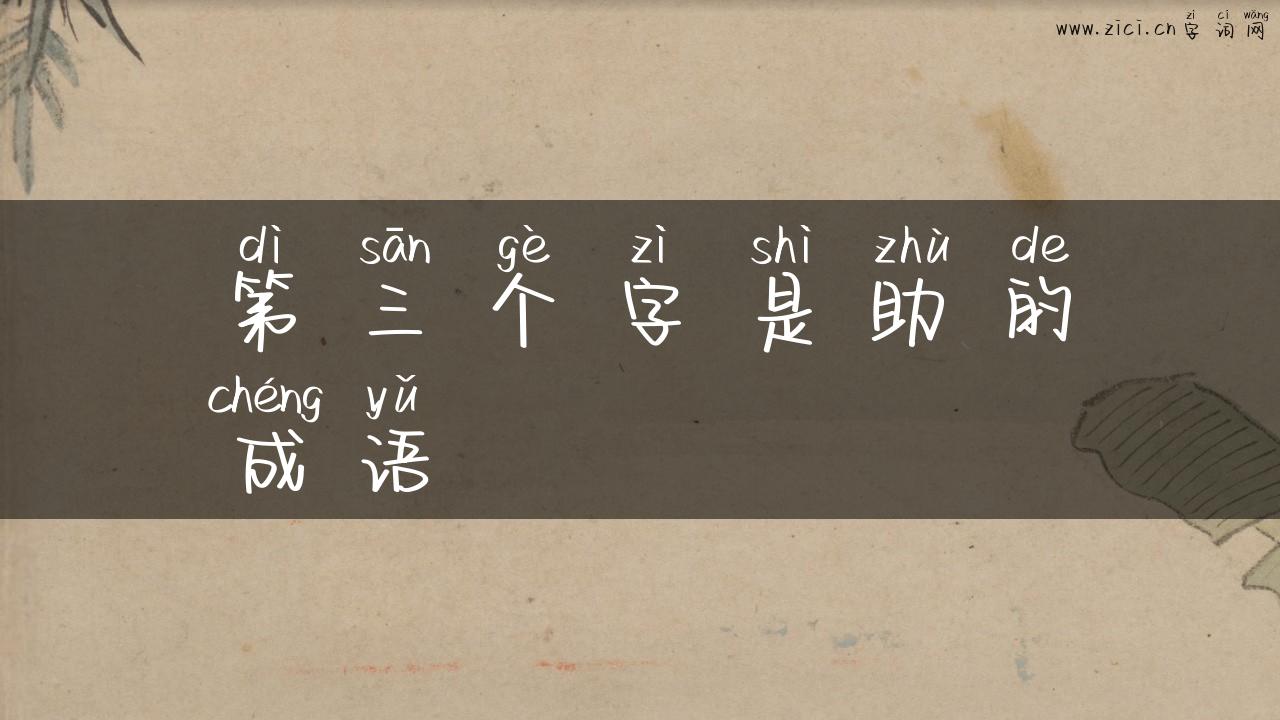 zì cí wǎng
www.zici.cn 字词网
dì sān gè zì shì zhù de
第三个字是助的
chéng yǔ
成语